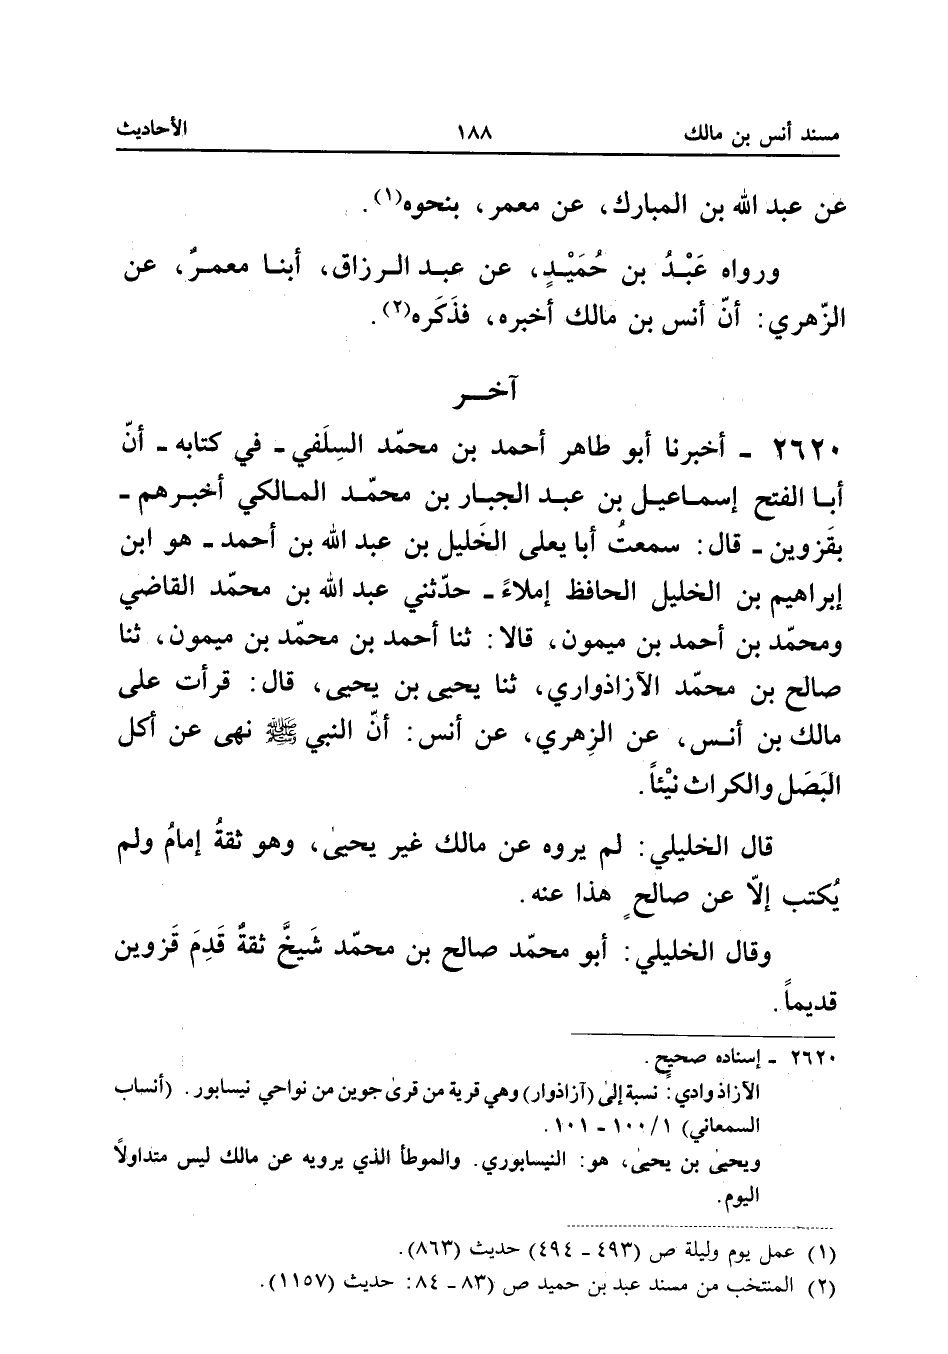 مسند أنس بن مالك ١٨٨ الأحاديث
عن عبد الله بن المبارك، عن معمر، بنحوه(١).
ورواه عَبْدُ بن حُمَيْدٍ، عن عبد الرزاق، أبنا معمرٌ، عن
الزّهري: أنّ أنس بن مالك أخبره، فذَكَره(٢).
آخر
٢٦٢٠ ـ أخبرنا أبو طاهر أحمد بن محمّد السِلَفي ـ في كتابه ـ أنّ
أبا الفتح إسماعيل بن عبد الجبار بن محمّد المالكي أخبرهم ـ
بقَزوين ـ قال: سمعتُ أبا يعلى الخَليل بن عبد الله بن أحمد ـ هو ابن
إبراهيم بن الخليل الحافظ إملاءً ـ حدّثني عبد الله بن محمّد القاضي
ومحمّد بن أحمد بن ميمون، قالا: ثنا أحمد بن محمّد بن ميمون، ثنا
صالح بن محمّد الآزاذواري، ثنا يحيى بن يحيى، قال: قرأت على
مالك بن أنس، عن الزهري، عن أنس: أنّ النبي ﷺ نهى عن أكل
البَصَل والكراث نيْئاً.
قال الخليلي: لم يروه عن مالك غير يحيىٰ، وهو ثقةُ إمامُ ولم
يُكتب إلّا عن صالحٍ هذا عنه.
وقال الخليلي: أبو محمّد صالح بن محمّد شَيخٌ ثقةٌ قَدِمَ قَزوين
قديماً.
٢٦٢٠ ـ إسناده صحيح.
الآزاذوادي: نسبة إلىٰ (آزاذوار) وهي قرية من قرىٰ جوين من نواحي نيسابور. (أنساب
السمعاني) ١/١٠٠ ـ ١٠١.
ويحيىٰ بن يحيىٰ، هو: النيسابوري. والموطأ الذي يرويه عن مالك ليس متداولاً
اليوم.
(١) عمل يوم وليلة ص (٤٩٣ ـ ٤٩٤) حديث (٨٦٣).
(٢) المنتخب من مسند عبد بن حميد ص (٨٣ ـ ٨٤: حديث (١١٥٧).